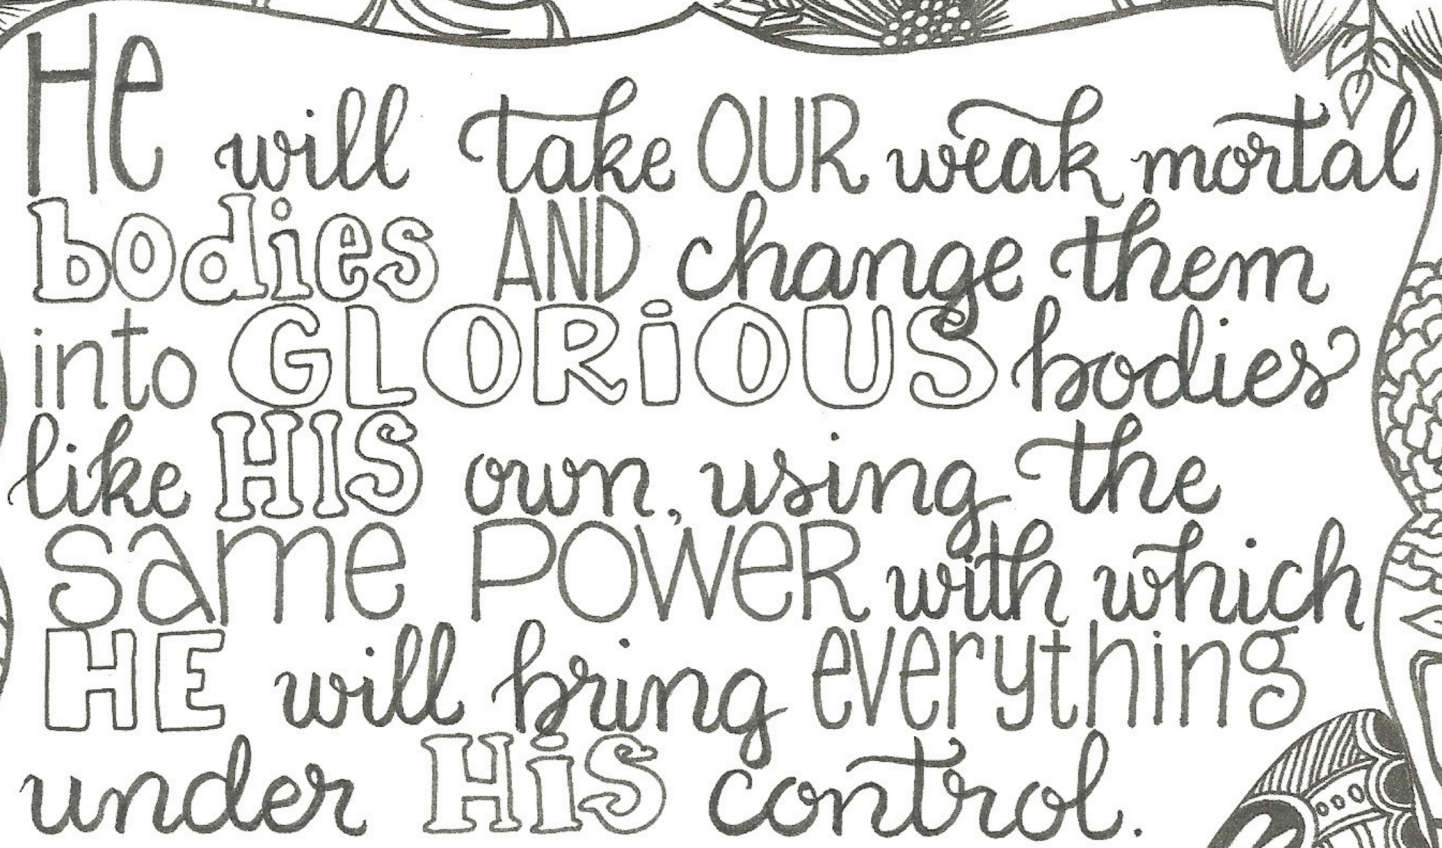 He will take OUR weak mortal
bodies AND change them
into GLORiOUS bodies
like HIS own, using the
same POWeR with which
HE will bring everything
under HiS control.